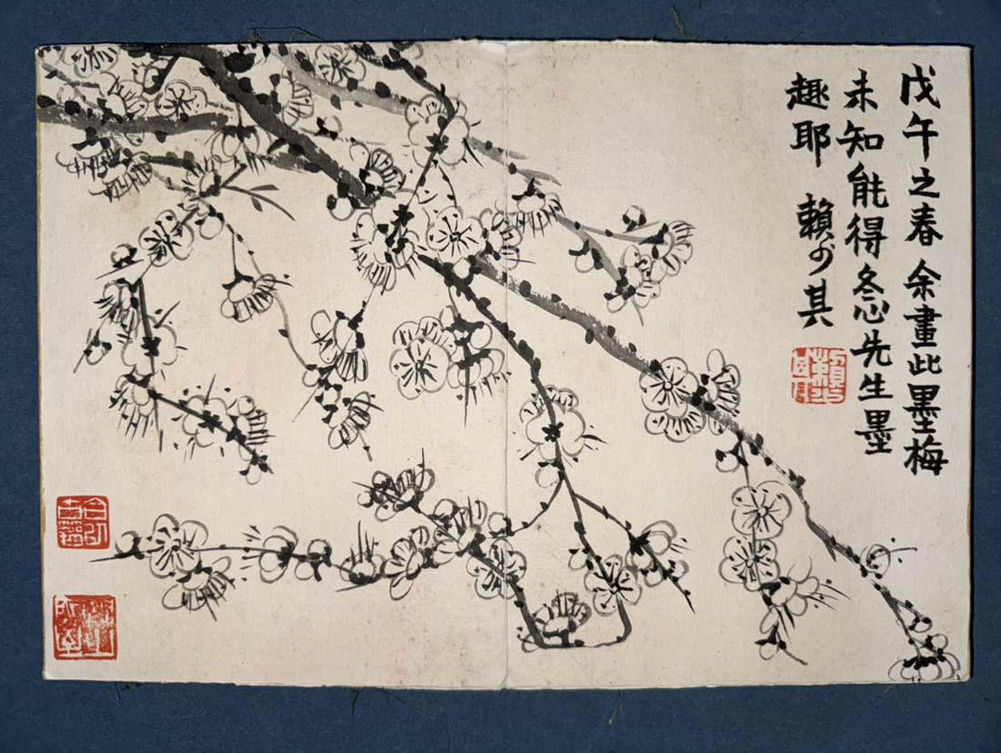 戊午之春余畫此墨梅
未知能得冬心先生墨
趣耶 賴少其